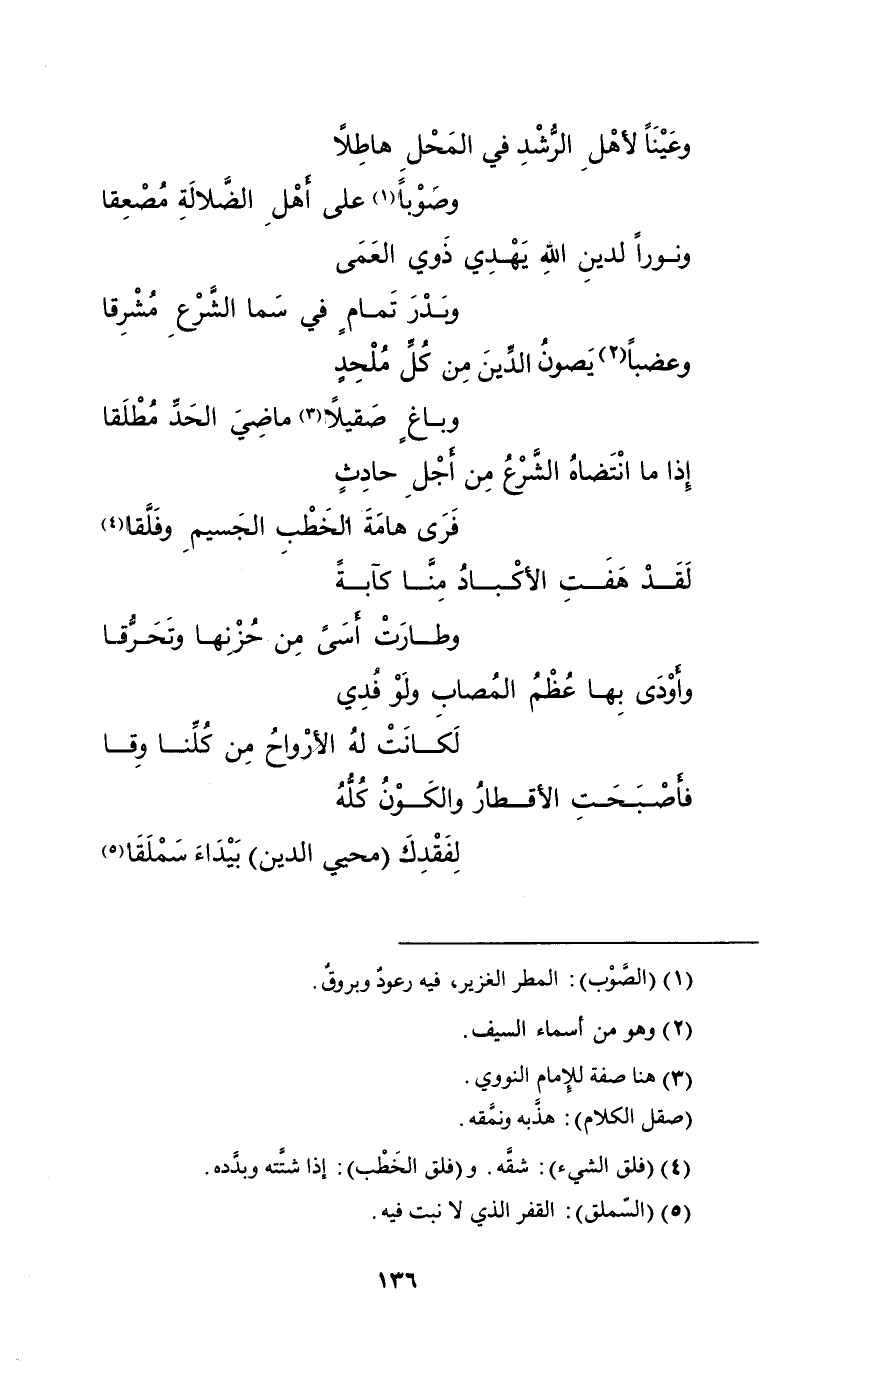 وعَيْنَاً لأهْلِ الرُّشْدِ في المَحْلِ هاطِلًا
وصَوْباً(١) على أَهْلِ الضَّلالَةِ مُصْعِقا
ونـوراً لدينِ اللهِ يَهْـدِي ذَوي العَمَى
وبَـدْرَ تَمـامٍ في سَما الشَّرْعِ مُشْرِقا
وعضباً(٢) يَصونُ الدِّينَ مِن كُلِّ مُلْحِدٍ
وبـاغٍ صَقيلًا(٣) ماضِيَ الحَدِّ مُطْلَقا
إِذا ما انْتَضاهُ الشَّرْعُ مِن أَجْلِ حادِثٍ
فَرَى هامَةَ الخَطْبِ الجَسيمِ وفَلَّقا(٤)
لَقَـدْ هَفَـتِ الأكْبـادُ مِنَّـا كآبـةً
وطـارَتْ أَسَىً مِن حُزْنِهـا وتَحَـرُّقـا
وأَوْدَى بِهـا عُظْمُ المُصابِ ولَوْ فُدِي
لَكـانَتْ لهُ الأرْواحُ مِن كُلِّنـا وِقـا
فأَصْبَـحَـتِ الأقـطارُ والكَـوْنُ كُلُّهُ
لِفَقْدِكَ (محيي الدين) بَيْدَاءَ سَمْلَقَا(٥)
(١) (الصَّوْب): المطر الغزير، فيه رعودٌ وبروقٌ.
(٢) وهو من أسماء السيف.
(٣) هنا صفة للإمام النووي.
(صقل الكلام): هذَّبه ونمَّقه.
(٤) (فلق الشيء): شقَّه. و(فلق الخَطْب): إذا شتَّته وبدَّده.
(٥) (السّملق): القفر الذي لا نبت فيه.
١٣٦